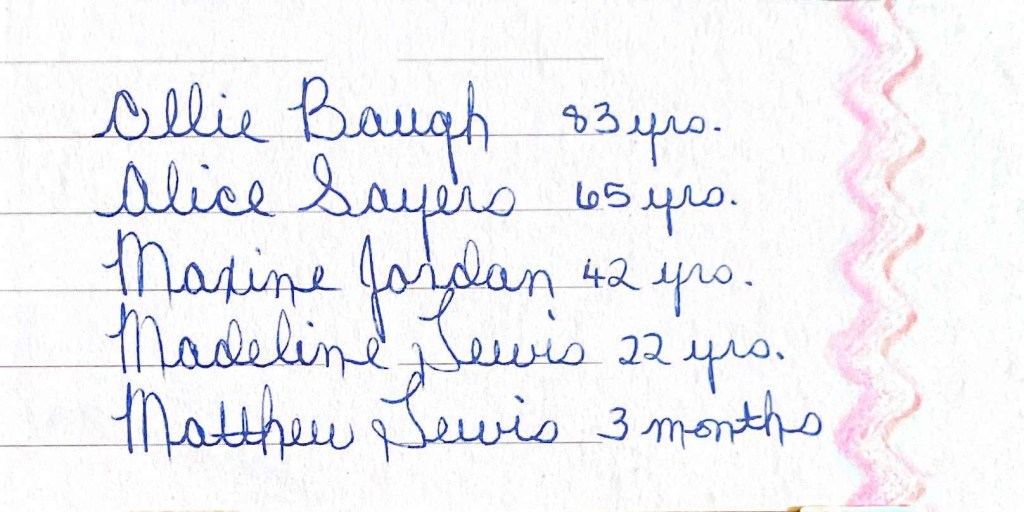 Ollie Baugh 83 yrs.
Alice Sayers 65 yrs.
Maxine Jordan 42 yrs.
Madeline Lewis 22 yrs.
Matthew Lewis 3 months